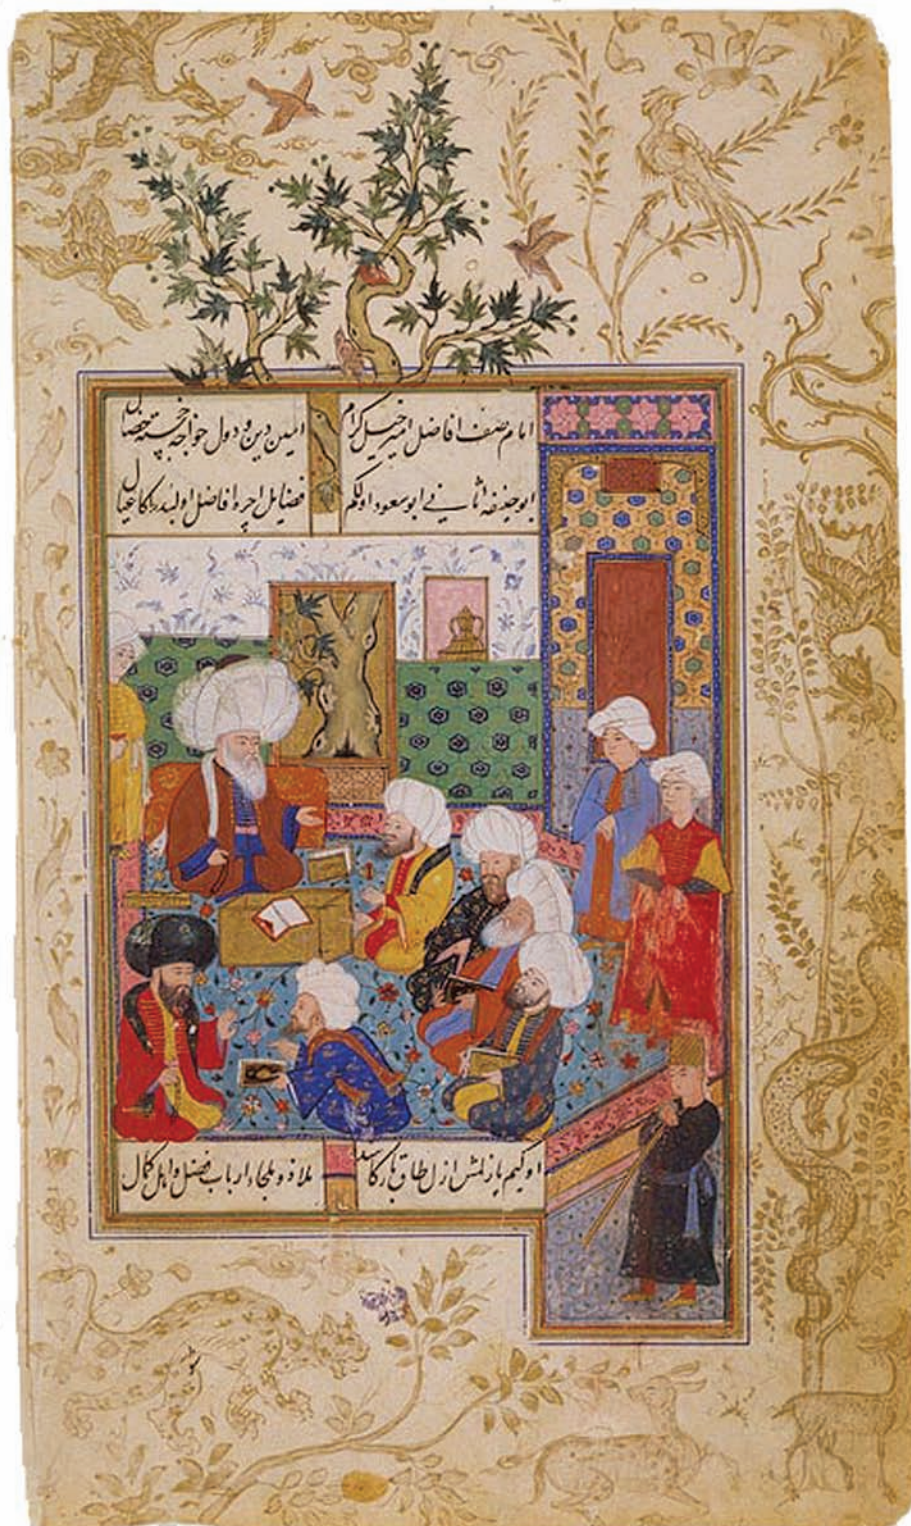 امام صف افاضل امیر خیل کرام امین دین و دول خواجه خجسته خصال
ابو حنیفه ثانی ابو سعود اولکم فضایل اجره افاضل اولبدر اکا عیال
اوکیم یازلمش ازل طاق ملاذ و ملجاء ارباب فضل و اهل کمال